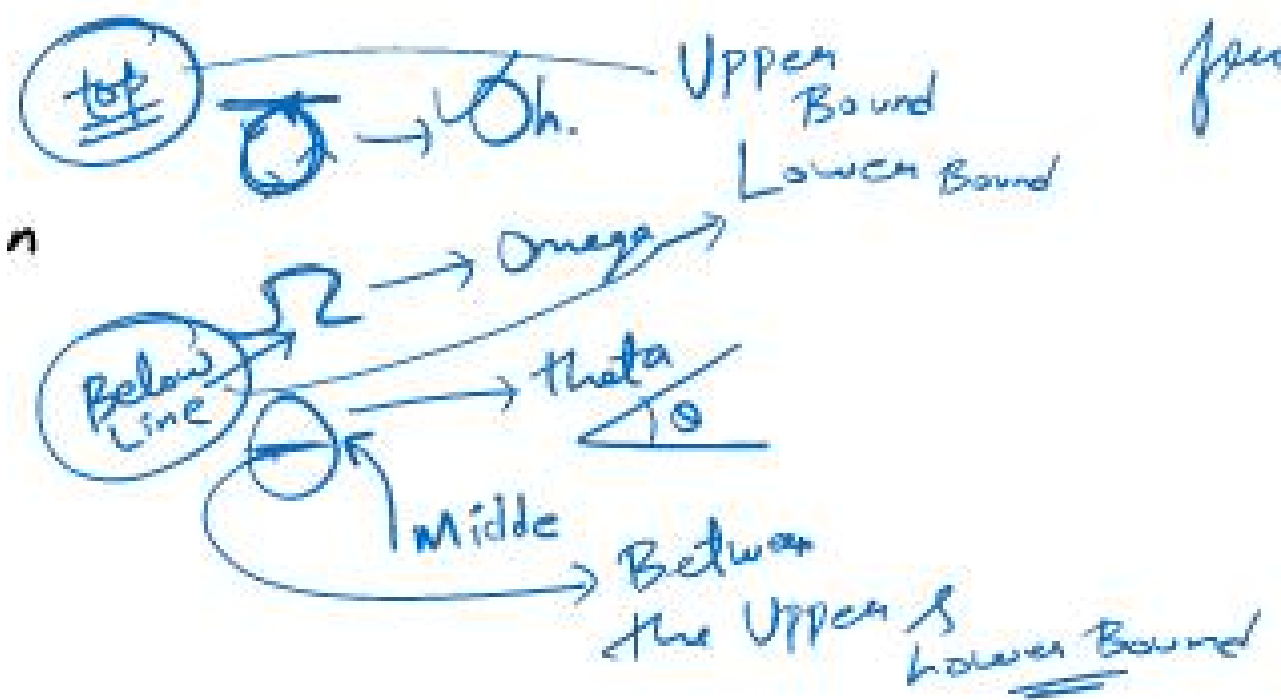 top
Oh.
Upper
Bound
Lower Bound
n
Ω
Omega
Below
Line
theta
θ
Midde
Between
the Upper &
Lower Bound